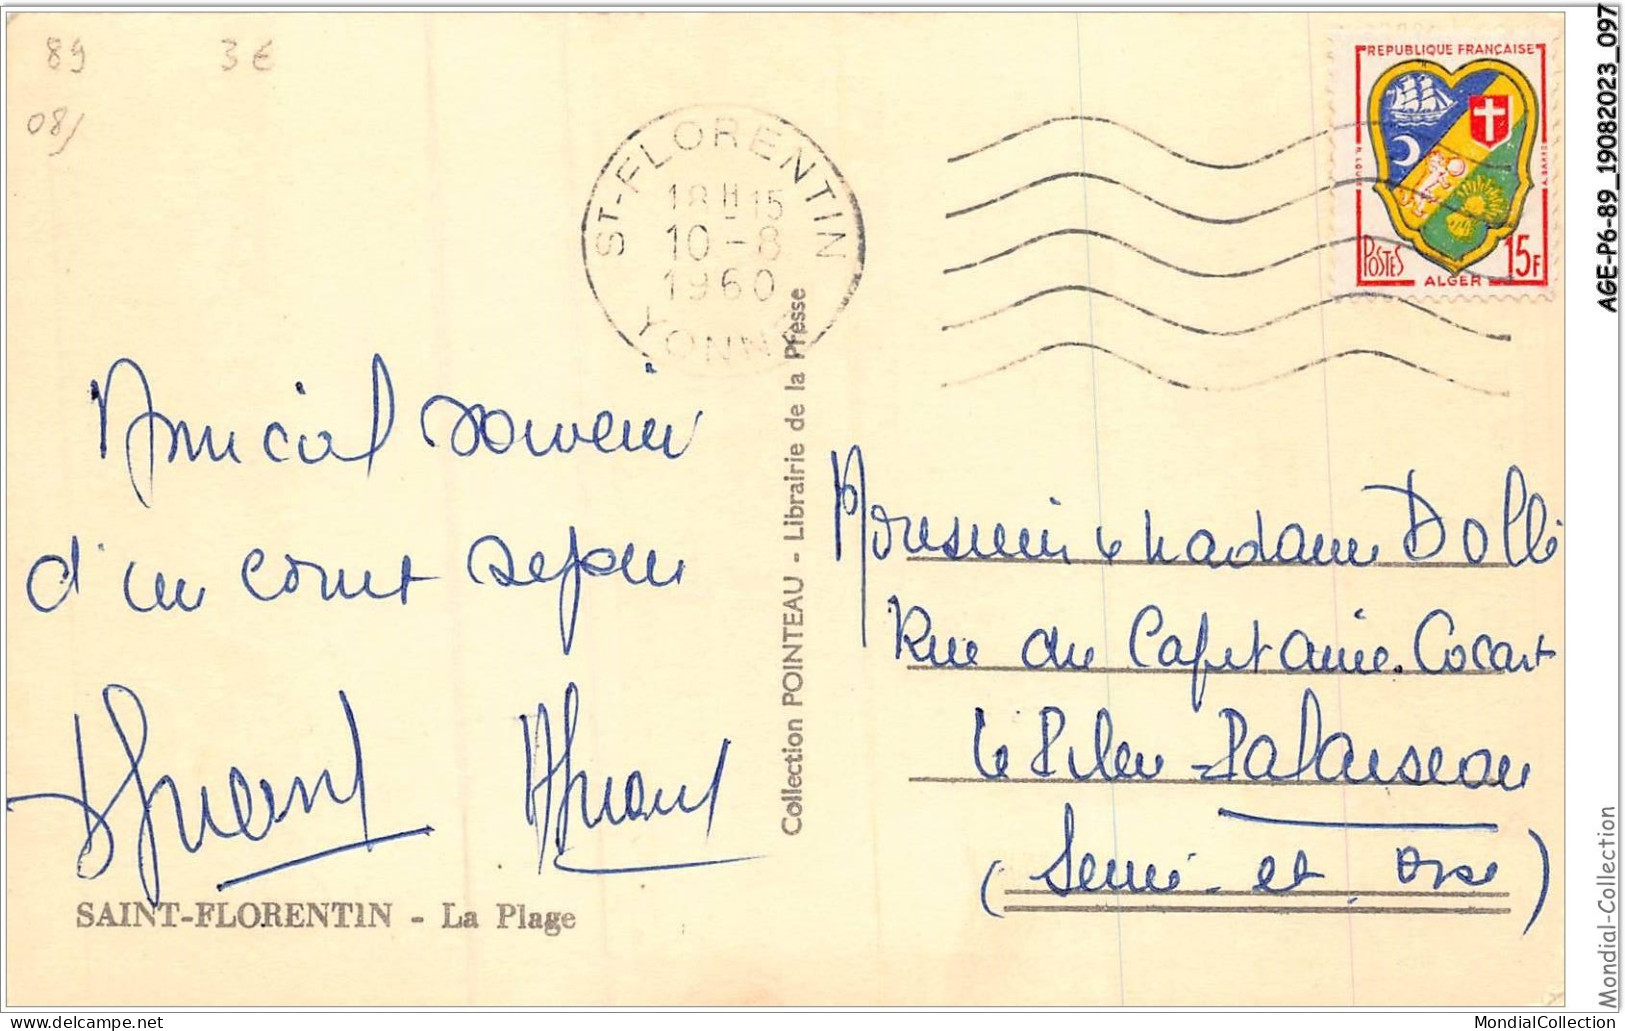 89 3€
08/
ST-FLORENTIN
18H15
10-8
1960
YONNE
REPUBLIQUE FRANÇAISE
POSTES 15F
ALGER
Amical souvenir
d'un court sejour
Monsieur & Madame Dolli
Rue du Capitaine Cocart
Le Pileu - Palaiseau
(Seine et Oise)
SAINT-FLORENTIN - La Plage
Collection POINTEAU - Librairie de la Presse
AGE-P6-89_19082023_097
Mondial-Collection
MondialCollection
delcampe.net